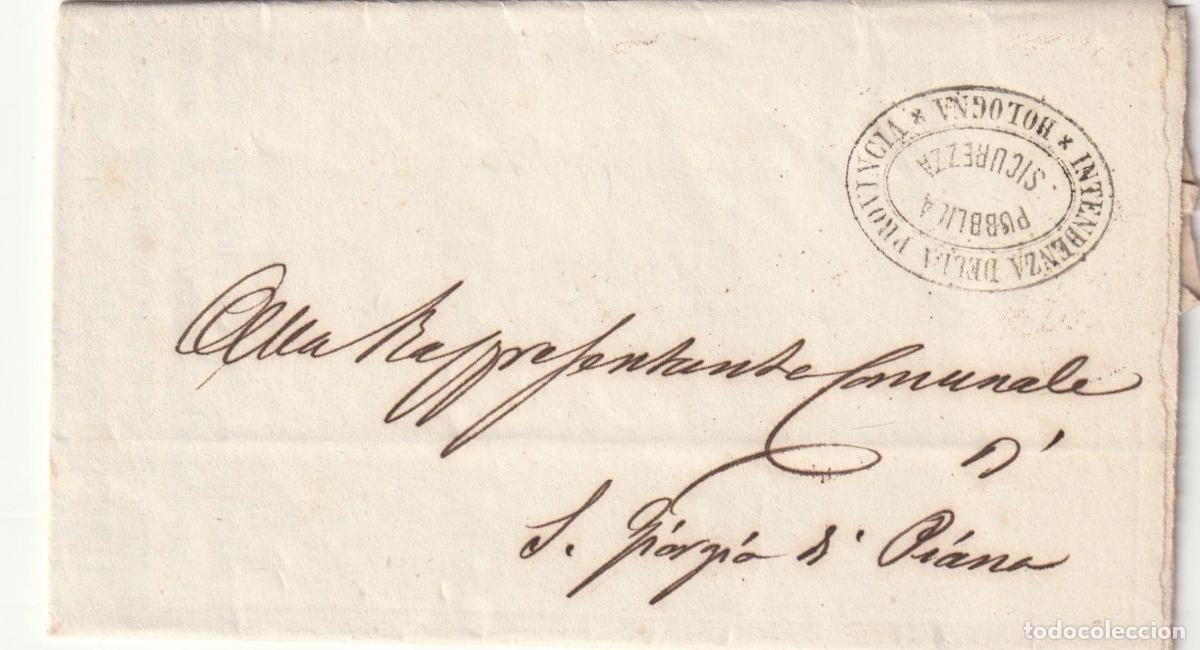 INTENDENZA DELLA PROVINCIA * BOLOGNA *
PUBBLICA
SICUREZZA
Alla Rappresentante Comunale
di
S. Giorgio di Piano
todocoleccion